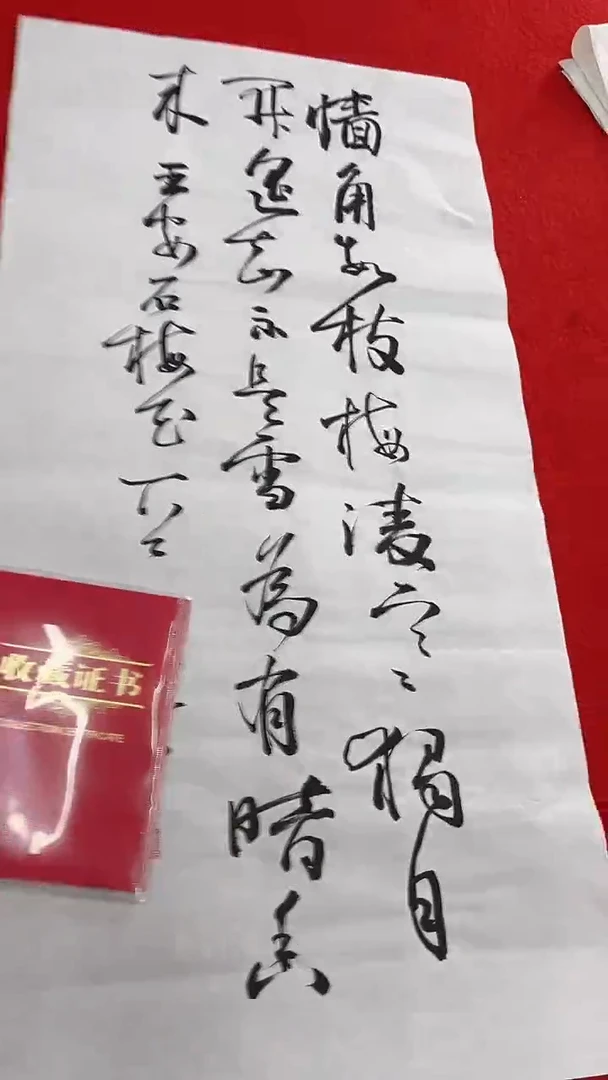 墙角数枝梅淩寒獨自
开遥知不是雪為有暗香
来 王安石梅花
收藏证书